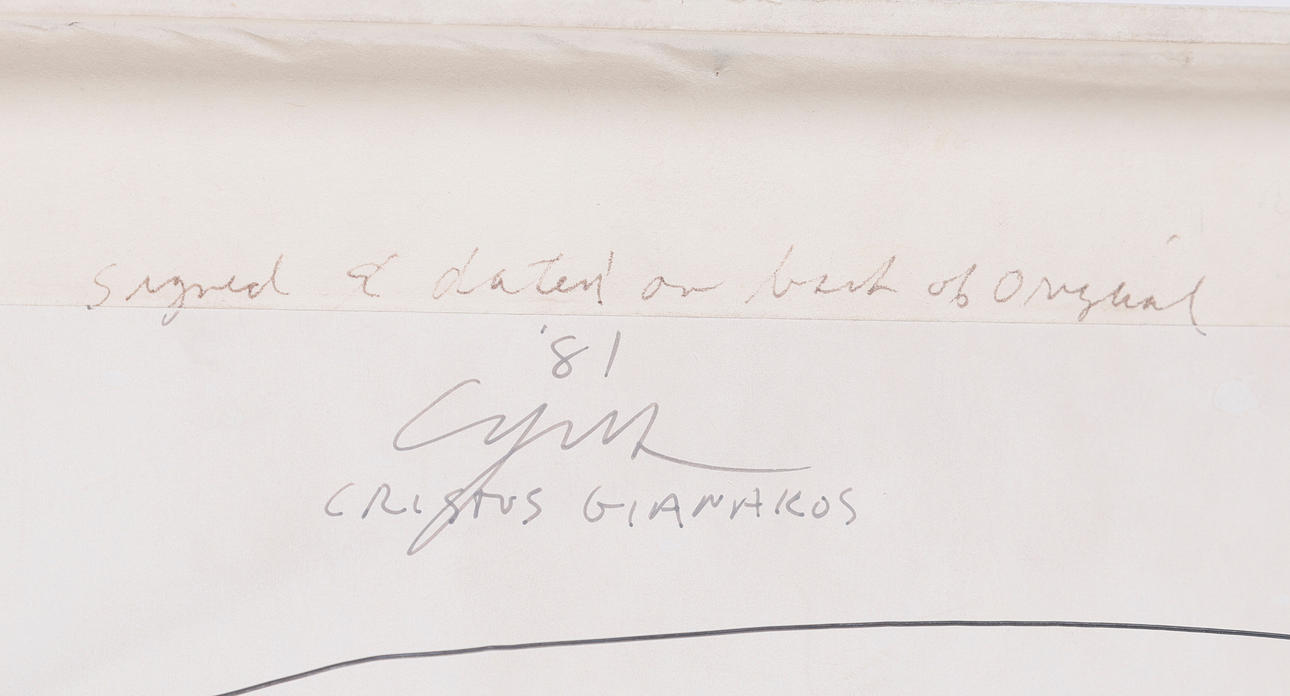 signed & dated on back of Original
'81
CRISTOS GIANAKOS